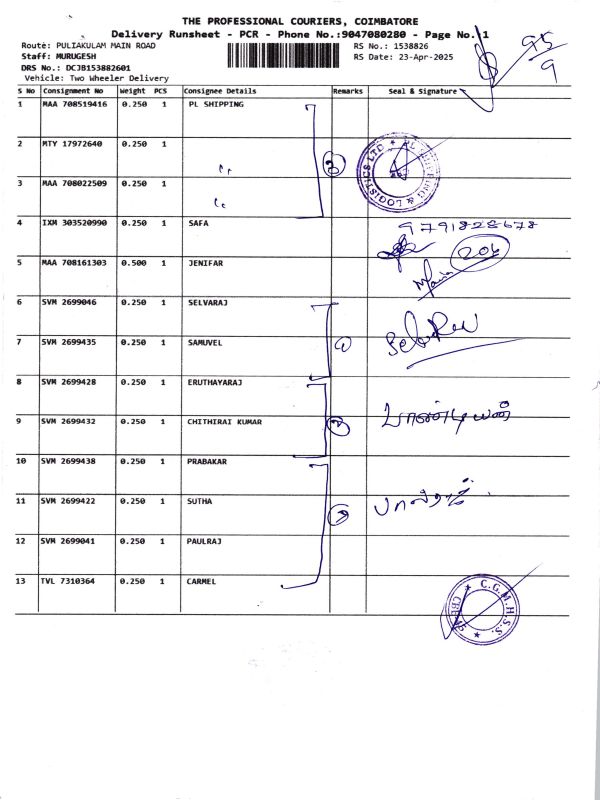 THE PROFESSIONAL COURIERS, COIMBATORE
Delivery Runsheet - PCR - Phone No.:9047080280 - Page No.:1
Route: PULIAKULAM MAIN ROAD
RS No.: 1538826
95/9
Staff: MURUGESH
RS Date: 23-Apr-2025
DRS No.: DCJB153882601
Vehicle: Two Wheeler Delivery
S No Consignment No Weight PCS Consignee Details Remarks Seal & Signature
1 MAA 708519416 0.250 1 PL SHIPPING
2 MTY 17972640 0.250 1 "
3 MAA 708022509 0.250 1 "
& LOGISTICS LTD
4 IXM 303520990 0.250 1 SAFA 9791828678
5 MAA 708161303 0.500 1 JENIFAR 206
6 SVM 2699046 0.250 1 SELVARAJ
7 SVM 2699435 0.250 1 SAMUVEL
8 SVM 2699428 0.250 1 ERUTHAYARAJ
9 SVM 2699432 0.250 1 CHITHIRAI KUMAR
10 SVM 2699438 0.250 1 PRABAKAR
11 SVM 2699422 0.250 1 SUTHA
12 SVM 2699041 0.250 1 PAULRAJ
13 TVL 7310364 0.250 1 CARMEL
C.G.M.H.S.S.